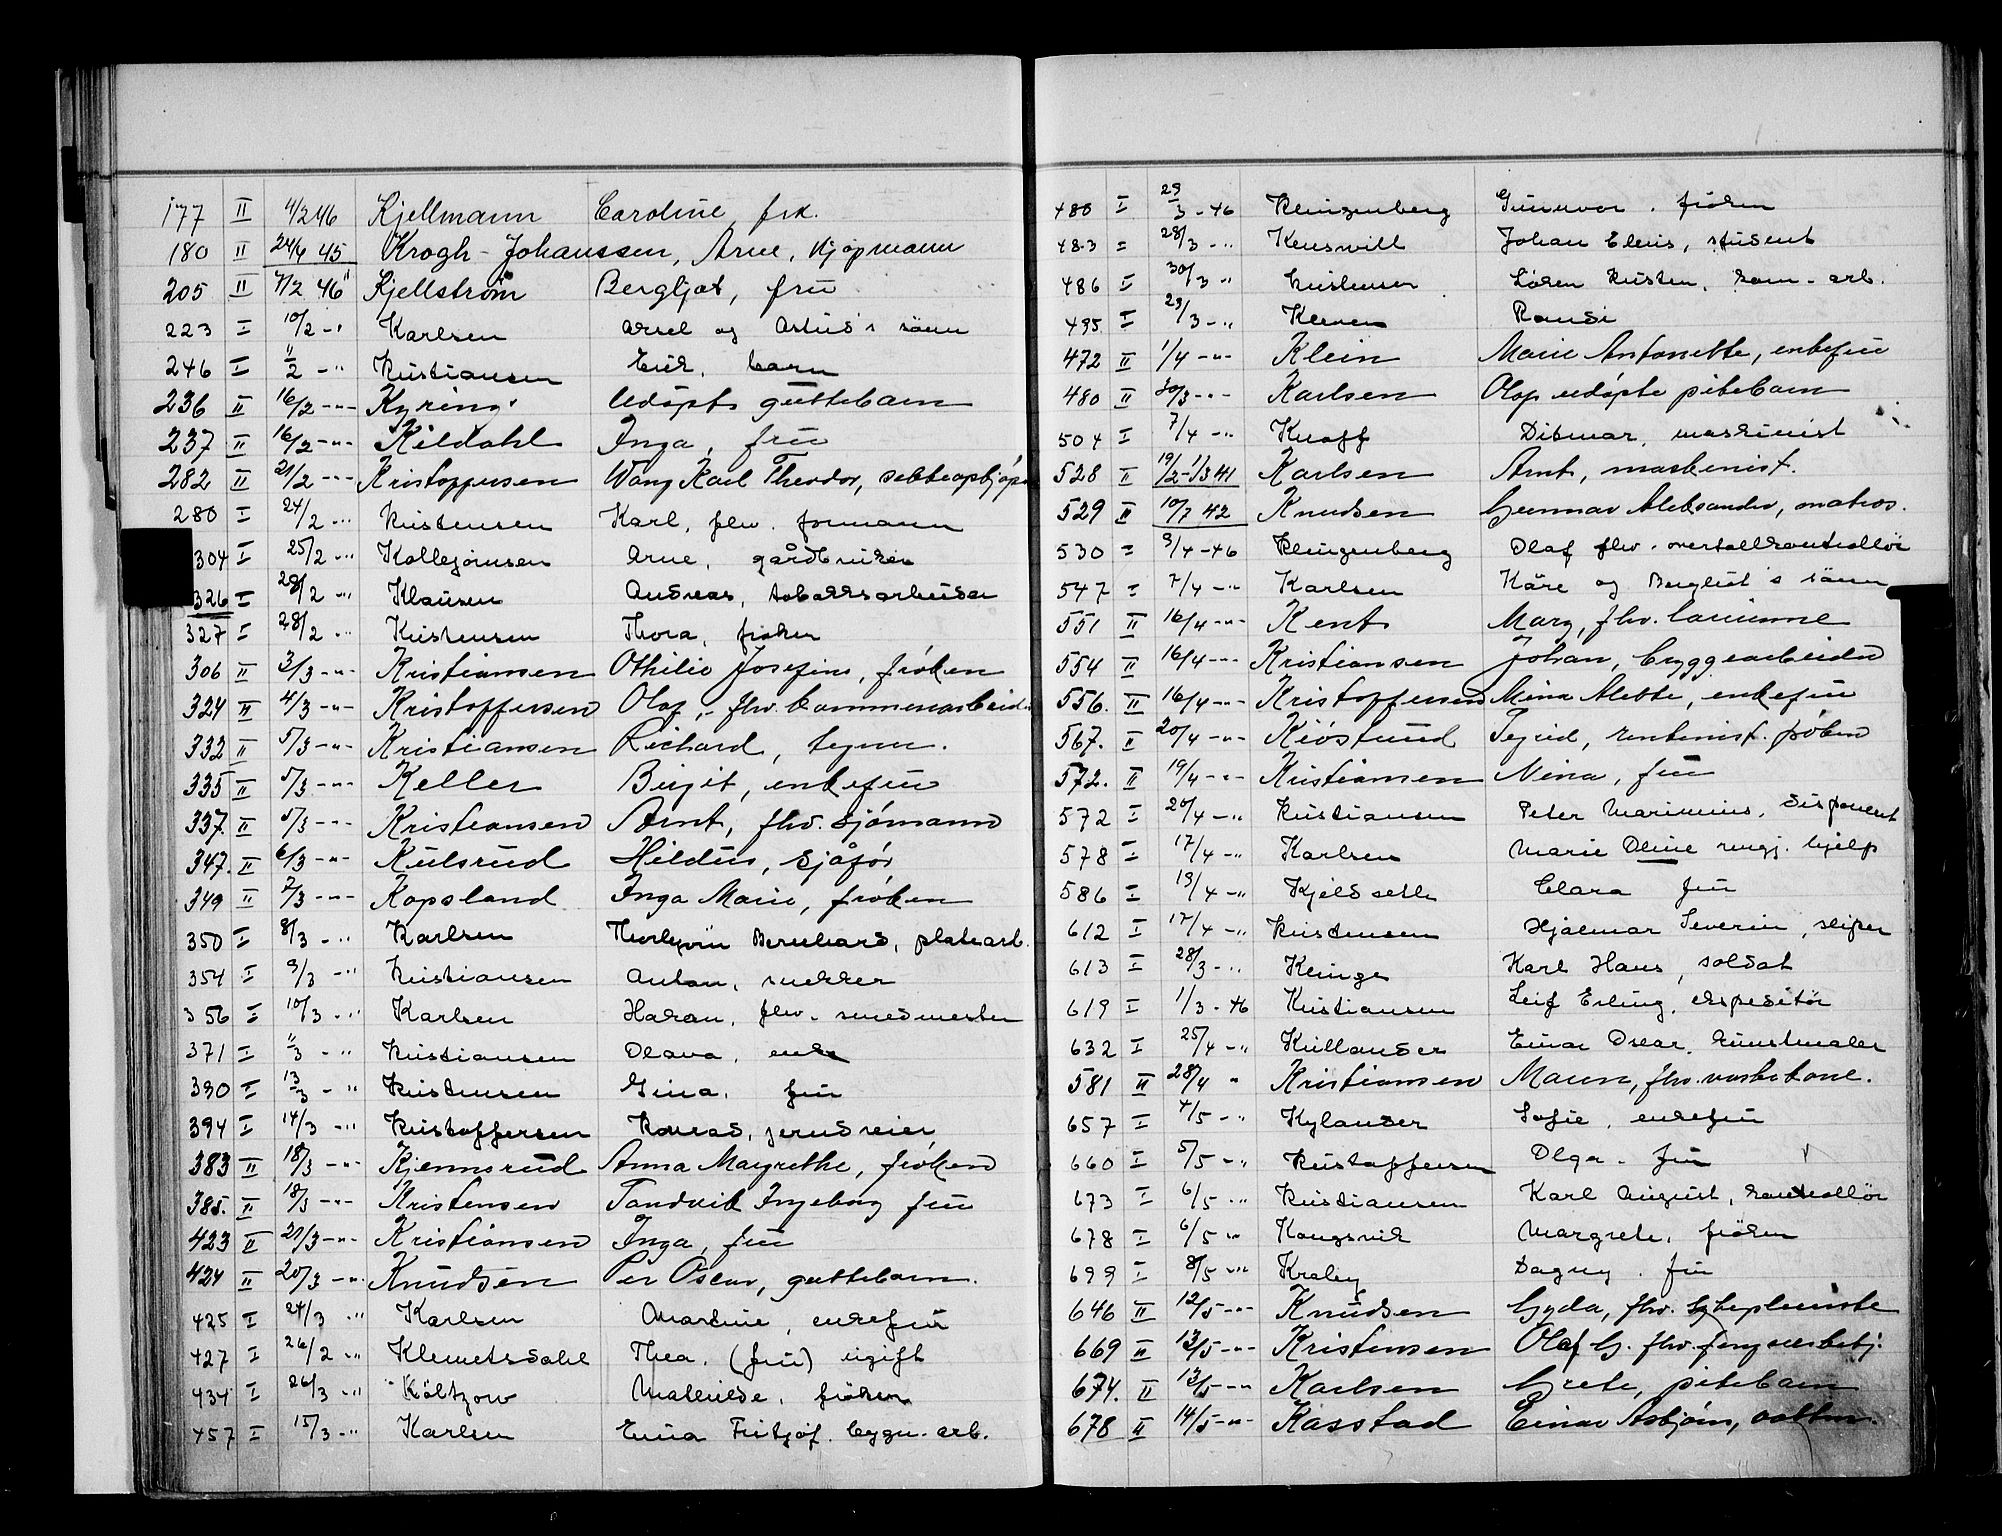 177 II 4/2 46 Kjellmann Caroline, frk.
180 II 24/4 45 Krogh-Johanssen, Arne, kjøpmann
205 II 7/2 46 Kjellstrøm Bergljot, fru
223 I 10/2 -"- Karlsen Aksel og Astrid's sönn
246 I 11/2 -"- Kristiansen Erik, barn
236 II 16/2 -"- Kyring Udøpt guttebarn
237 II 16/2 -"- Kildahl Inga, fru
282 II 21/2 -"- Kristoffersen Wang Karl Theodor,
280 I 24/2 -"- Kristensen Karl, fhv. formann
304 I 25/2 -"- Kollejornsen Arne, gårdbruker
326 I 28/2 -"- Klausen Andreas, tobakksarbeider
327 I 28/2 -"- Kristensen Thora, fröken
306 II 3/3 -"- Kristiansen Othilie Josefine, frøken
324 II 4/3 -"- Kristoffersen Olaf, fhv.
332 II 5/3 -"- Kristiansen Richard, tegner.
335 II 5/3 -"- Keller Birgit, enkefru
337. II 5/3 -"- Kristiansen Arnt, fhv. sjømann
347. II 6/3 -"- Kulsrud Hildus, sjåfør
349 II 7/3 -"- Kopsland Inga Marie, frøken
350 I 8/3 -"- Karlsen Thorbjörn Bernhard, platearb.
354 I 9/3 -"- Kristiansen Anton, snekker
356 I 10/3 -"- Karlsen Hakon, fhv. smedmester
371 I 11/3 -"- Kristiansen Olava, enke
390 I 13/3 -"- Kristensen Gina, fru
394 I 14/3 -"- Kristoffersen Konrad,
383 II 18/3 -"- Kjennsrud Anna Margrethe, frøken
385. II 18/3 -"- Kristensen Tandvik Ingeborg fru
423 II 21/3 -"- Kristiansen Inga, fru
424 II 20/3 -"- Knudsen Per Oscar, guttebarn.
425 I 24/3 -"- Karlsen Martine, enkefru
427 I 26/2 -"- Klemetsdahl Thea, (fru) ugift
434 I 26/3 -"- Költzow Mathilde, fröken
457 I 15/3 -"- Karlsen Fritjof. bygn. arb.
480 I 29/3 -46 Klingenberg Gunvor. fröken
483 I 28/3 -"- Johan Elius, student
486 I 30/3 -"- Kristensen Sören Kristen, kom. arb.
495 I 29/3 -"- Kleven Randi
472 II 1/4 -"- Klein Marie Antonette, enkefru
480 II 30/3 -"- Karlsen Olaf udøpte pikebarn
504 I 7/4 -"- Knoff Ditmar, maskinist
528 II 19/2-1/3 41 Karlsen Arnt, maskinist.
529 II 10/7 42 Knudsen Gunnar Aleksander, matros.
530 I 9/4 -46 Klingenberg Olaf fhv. overtollkontrollör
547 I 7/4 -"- Karlsen Kåre og Bergliot's sönn
551 II 16/4 -"- Kent Marg, fhv.
554 II 16/4 -"- Kristiansen Johan, byggearbeider
556. II 16/4 -"- Kristoffersen Mina Alette, enkefru
567. II 20/4 -"- Kiøsterud Sigrid, rentenist. frøken
572. II 19/4 -"- Kristiansen Nina, fru
572 I 20/4 -"- Kristiansen Peter Marinius, disponent
578 I 17/4 -"- Karlsen Marie Oline rengj. hjelp
586 I 19/4 -"- Kjeldseth Clara fru
612 I 17/4 -"- Kristensen Hjalmar Severin, sliper
613 I 28/3 -"- Klinge Karl Hans, soldat
619 I 1/3 -46 Kristiansen Leif Erling, ekspeditör
632 I 25/4 -"- Kullander Einar Oscar, kunstmaler
581 II 28/4 " Kristiansen Maren, fhv. vaskekone.
657 I 4/5 -"- Kylander Sofie, enkefru
660 I 5/5 -"- Kristoffersen Olga. fru
673 I 6/5 -"- Kristiansen Karl August, kontrollör
678 I 6/5 -"- Kongsvik Margrete, fröken
699 I 8/5 -"- Kraby Dagny. fru
646 II 12/5 -"- Knudsen Gyda, fhv. sykepleierske
669 II 13/5 -"- Kristensen Olaf G. fhv. fengselsbetj.
674. II 13/5 -"- Karlsen Grete, pikebarn
678 II 14/5 -"- Kasstad Einar Asbjørn,